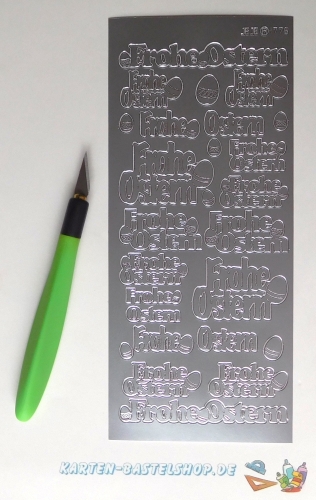 Frohe Ostern
Frohe Ostern
Frohe Ostern
Frohe Ostern
Frohe Ostern
Frohes Ostern
Frohe Ostern
Frohe Ostern
Frohe Ostern
Frohe Ostern
Frohe Ostern
Frohes Ostern
Frohe Ostern
Frohe Ostern
Frohe Ostern
Frohe Ostern
KARTEN-BASTELSHOP.DE